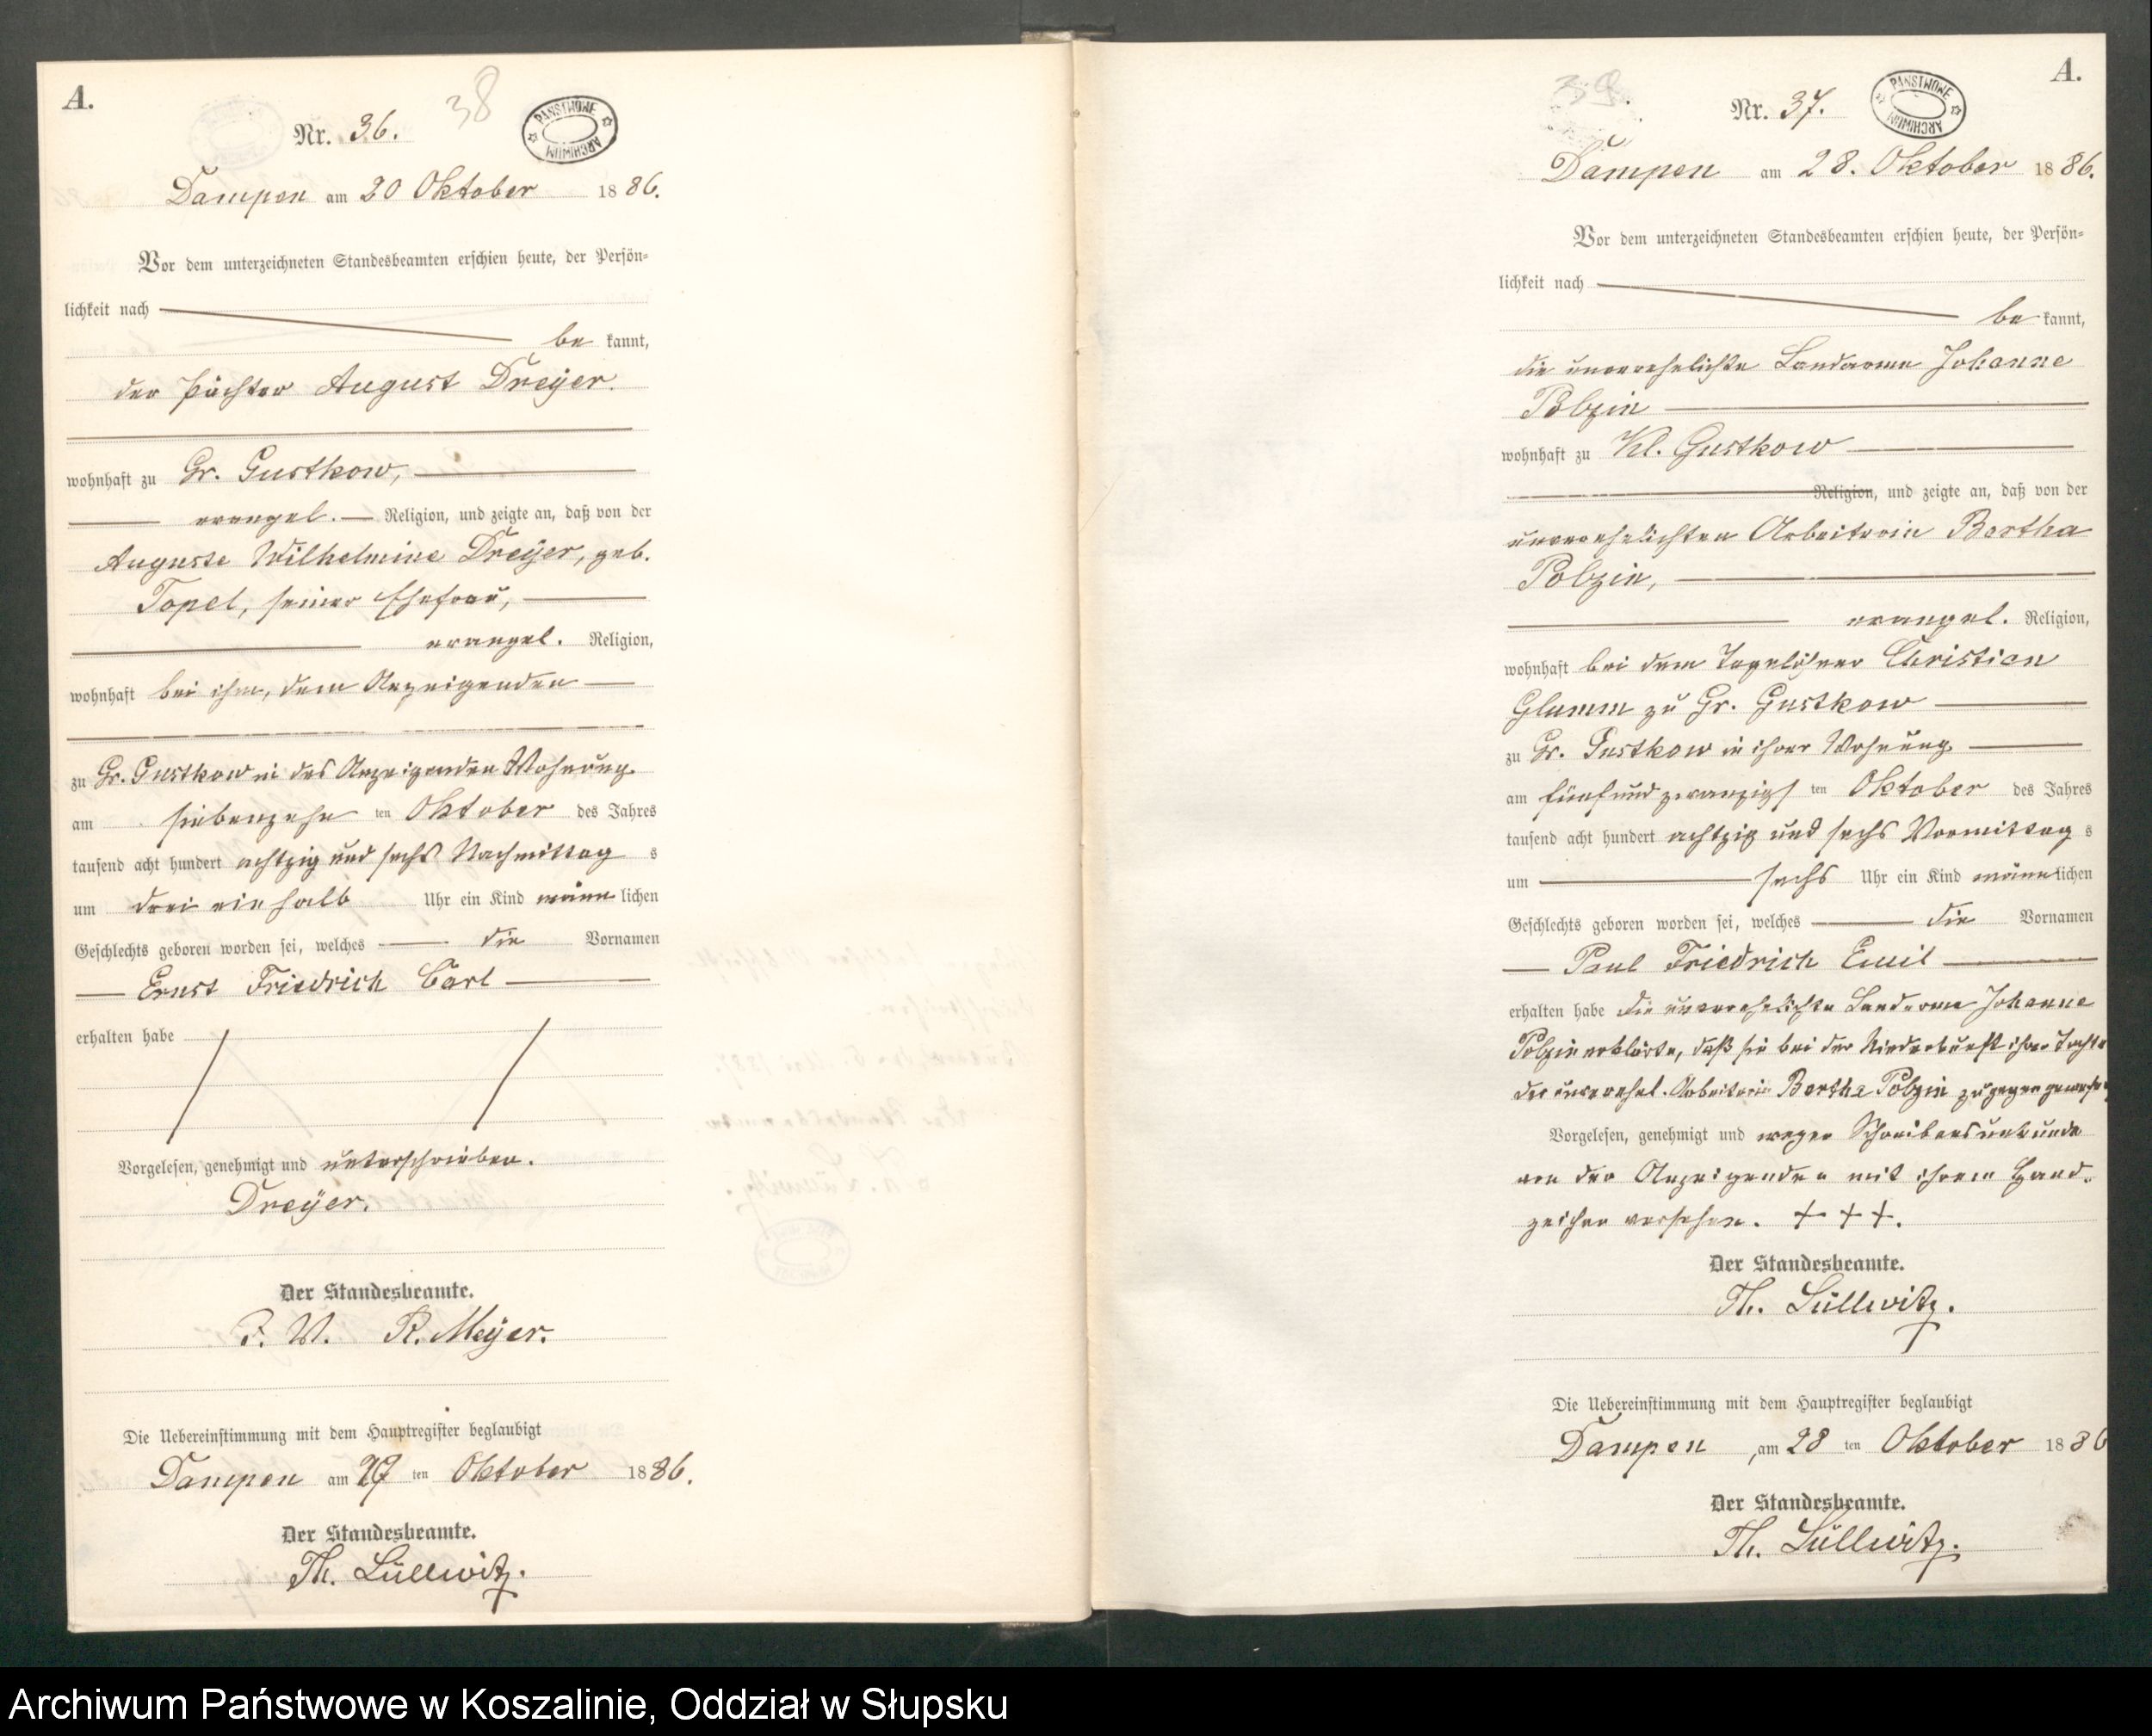 A.
Nr. 36.
38
PAŃSTWOWE ARCHIWUM
Dampen am 20 Oktober 1886.
Vor dem unterzeichneten Standesbeamten erschien heute, der Persön-
lichkeit nach
be kannt,
der Pächter August Dreÿer.
wohnhaft zu Gr. Gustkow,
evangel. Religion, und zeigte an, daß von der
Auguste Wilhelmine Dreÿer, geb.
Topel, seiner Ehefrau,
evangel. Religion,
wohnhaft bei ihm, dem Anzeigenden
zu Gr. Gustkow in des Anzeigenden Wohnung
am siebenzehn ten Oktober des Jahres
tausend acht hundert achtzig und sechs Nachmittag s
um drei ein halb Uhr ein Kind männ lichen
Geschlechts geboren worden sei, welches die Vornamen
Ernst Friedrich Carl
erhalten habe
Vorgelesen, genehmigt und unterschrieben.
Dreÿer.
Der Standesbeamte.
I. V. R. Meÿer.
Die Uebereinstimmung mit dem Hauptregister beglaubigt
Dampen am ten Oktober 1886.
Der Standesbeamte.
Th. Lüllwitz.
A.
39
Nr. 37.
PAŃSTWOWE ARCHIWUM
Dampen am 28. Oktober 1886.
Vor dem unterzeichneten Standesbeamten erschien heute, der Persön-
lichkeit nach
be kannt,
die unverehelichte Landarme Johanne
Polzin
wohnhaft zu Kl. Gustkow
Religion, und zeigte an, daß von der
unverehelichten Arbeiterin Bertha
Polzin,
evangel. Religion,
wohnhaft bei dem Tagelöhner Christian
Glamm zu Gr. Gustkow
zu Gr. Gustkow in ihrer Wohnung
am fünf und zwanzigs ten Oktober des Jahres
tausend acht hundert achtzig und sechs Vormittag s
um sechs Uhr ein Kind männlichen
Geschlechts geboren worden sei, welches die Vornamen
Paul Friedrich Emil
erhalten habe die unverehelichte Landarme Johanne
Polzin erklärte, daß sie bei der Niederkunft ihrer Tochter
der unverehel. Arbeiterin Bertha Polzin zugegen gewesen
Vorgelesen, genehmigt und wegen Schreibensunkunde
von der Anzeigenden mit ihrem Hand-
zeichen versehen. + + +.
Der Standesbeamte.
Th. Lüllwitz.
Die Uebereinstimmung mit dem Hauptregister beglaubigt
Dampen, am 28 ten Oktober 1886
Der Standesbeamte.
Th. Lüllwitz.
Archiwum Państwowe w Koszalinie, Oddział w Słupsku